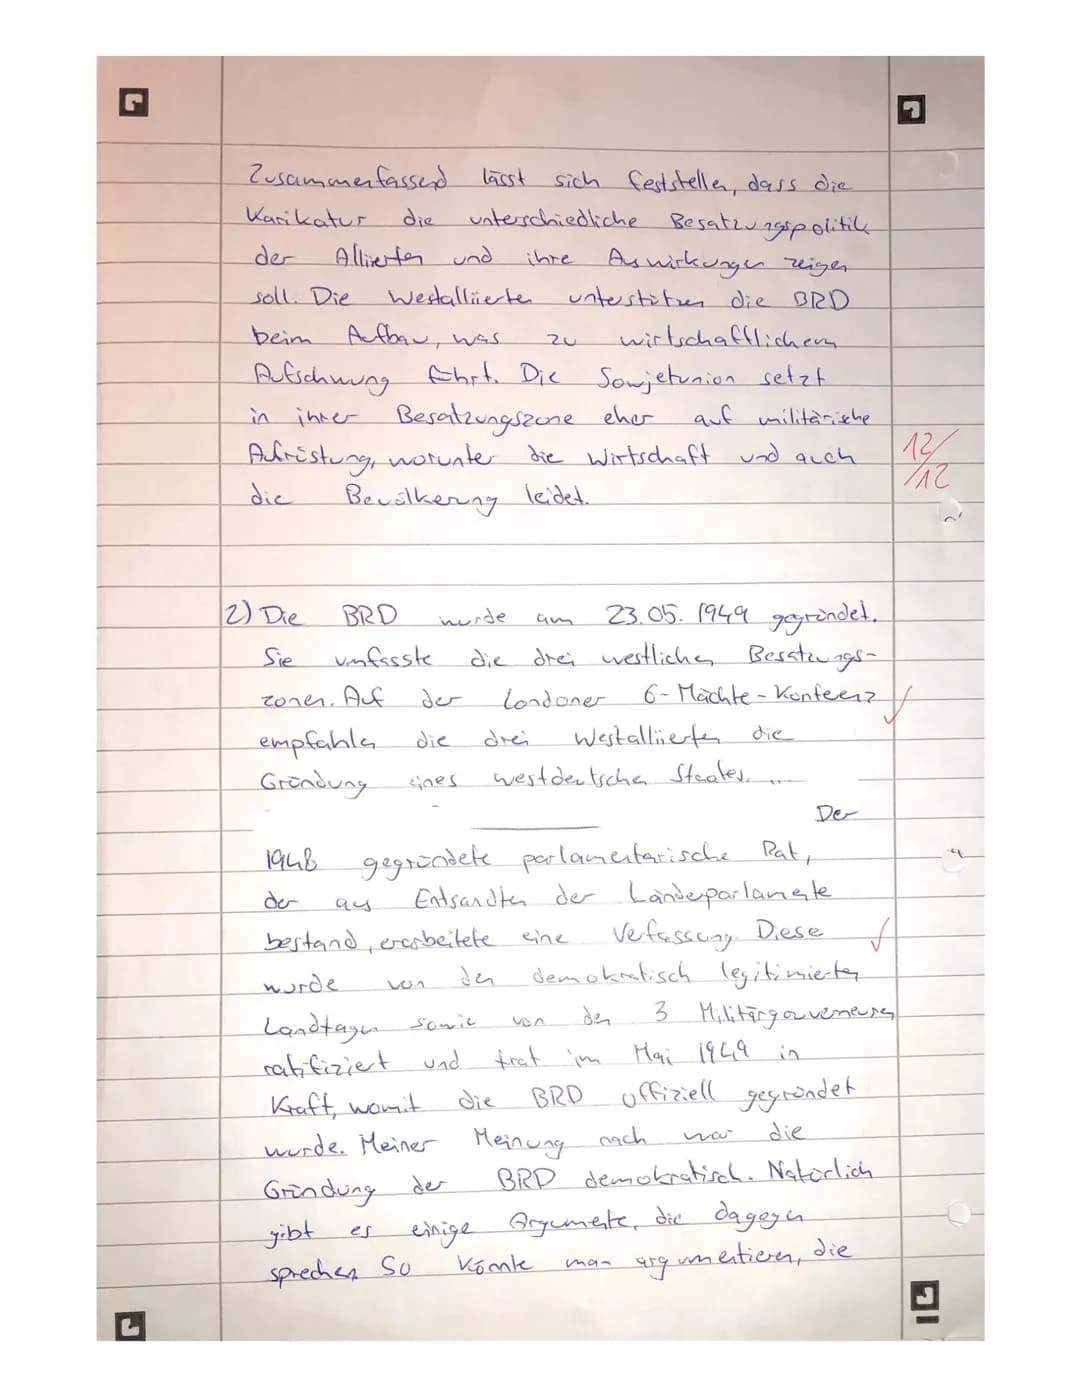 Zusammenfassend lässt sich feststellen, dass die
Karikatur die unterschiedliche Besatzungspolitik
der Alliierten und ihre Auswirkungen zeigen
soll. Die Westalliierten unterstützen die BRD
beim Aufbau, was zu wirtschaftlichem
Aufschwung führt. Die Sowjetunion setzt
in ihrer Besatzungszone eher auf militärische
Aufrüstung, worunter die Wirtschaft und auch
die Bevölkerung leidet.
12/12
2) Die BRD wurde am 23.05.1949 gegründet.
Sie umfasste die drei westlichen Besatzungs-
zonen. Auf der Londoner 6-Mächte-Konferenz
empfahlen die drei Westalliierten die
Gründung eines westdeutschen Staates.
Der
1948 gegründete parlamentarische Rat,
der aus Entsandten der Länderparlamente
bestand, erarbeitete eine Verfassung. Diese
wurde von den demokratisch legitimierten
Landtagen sowie von den 3 Militärgouverneuren
ratifiziert und trat im Mai 1949 in
Kraft, womit die BRD offiziell gegründet
wurde. Meiner Meinung nach war die
Gründung der BRD demokratisch. Natürlich
gibt es einige Argumente, die dagegen
sprechen. So könnte man argumentieren, die